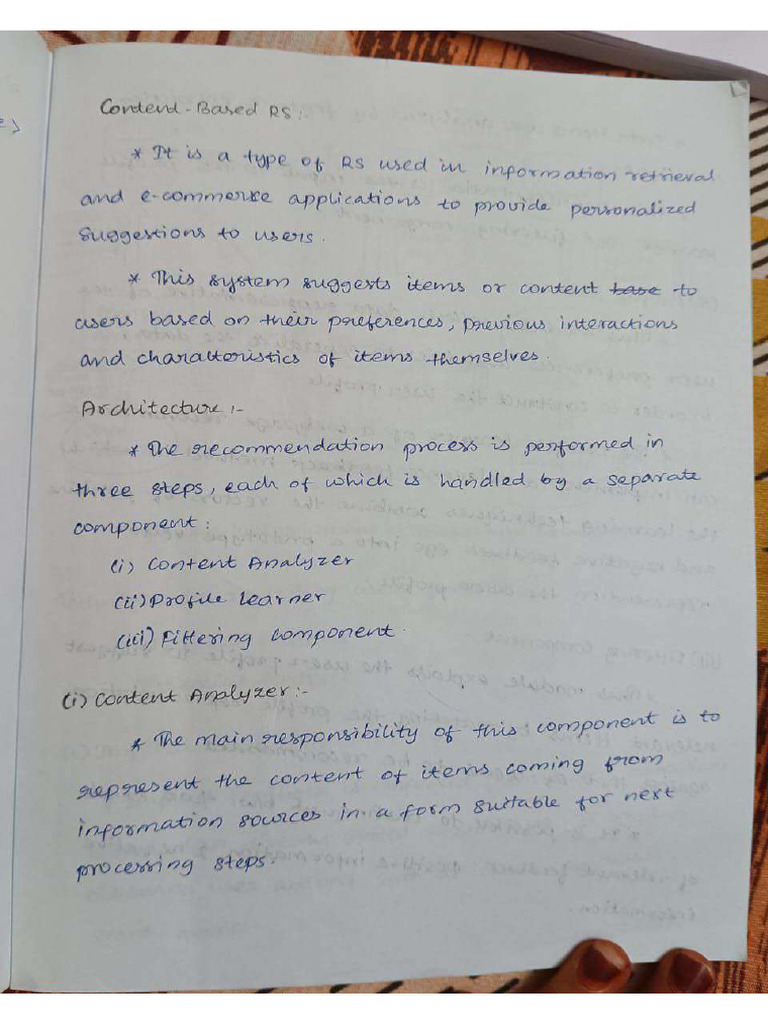 Content-Based RS:
* It is a type of RS used in information retrieval
and e-commerce applications to provide personalized
suggestions to users.
* This system suggests items or content base to
users based on their preferences, previous interactions
and characteristics of items themselves.
Architecture:-
* The recommendation process is performed in
three steps, each of which is handled by a separate
component:
(i) Content Analyzer
(ii) Profile Learner
(iii) Filtering Component.
(i) Content Analyzer:-
* The main responsibility of this component is to
represent the content of items coming from
information sources in a form suitable for next
processing steps.